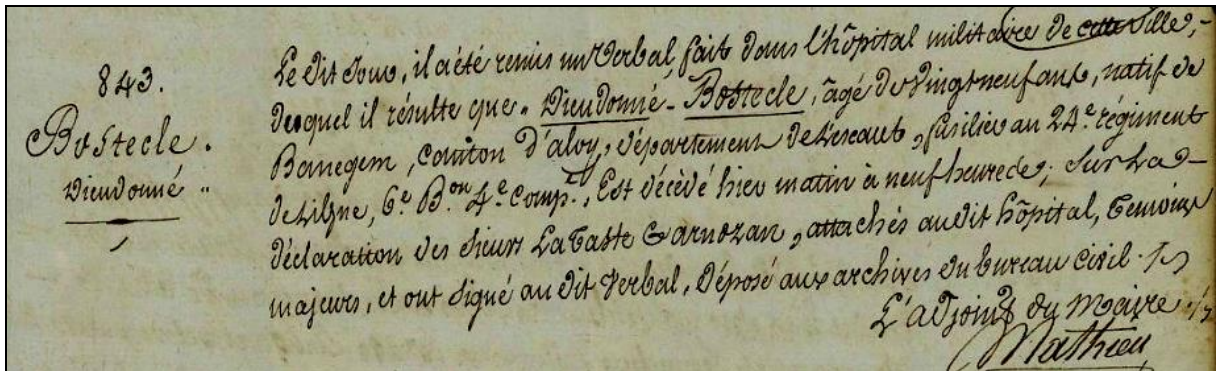 843.
Bostecle.
Dieudonné "
Le dit Jour, il a été remis un Verbal, fait dans l'hôpital militaire de cette Ville,
duquel il résulte que " Dieudonné - Bostecle, âgé de vingt neuf ans, natif de
Banegem, Canton d'aloy, département de Lescaut, fusilier au 24e. régiment
de Ligne, 6e. Bon. 4e. Compe., Est décédé hier matin à neuf heures; Sur la
déclaration des Sieurs La Taste & arnozan, attachés au dit hôpital, Temoins
majeurs, et ont Signé au dit Verbal, Déposé aux archives du bureau Civil.
L'adjoint du Maire
Mathieu